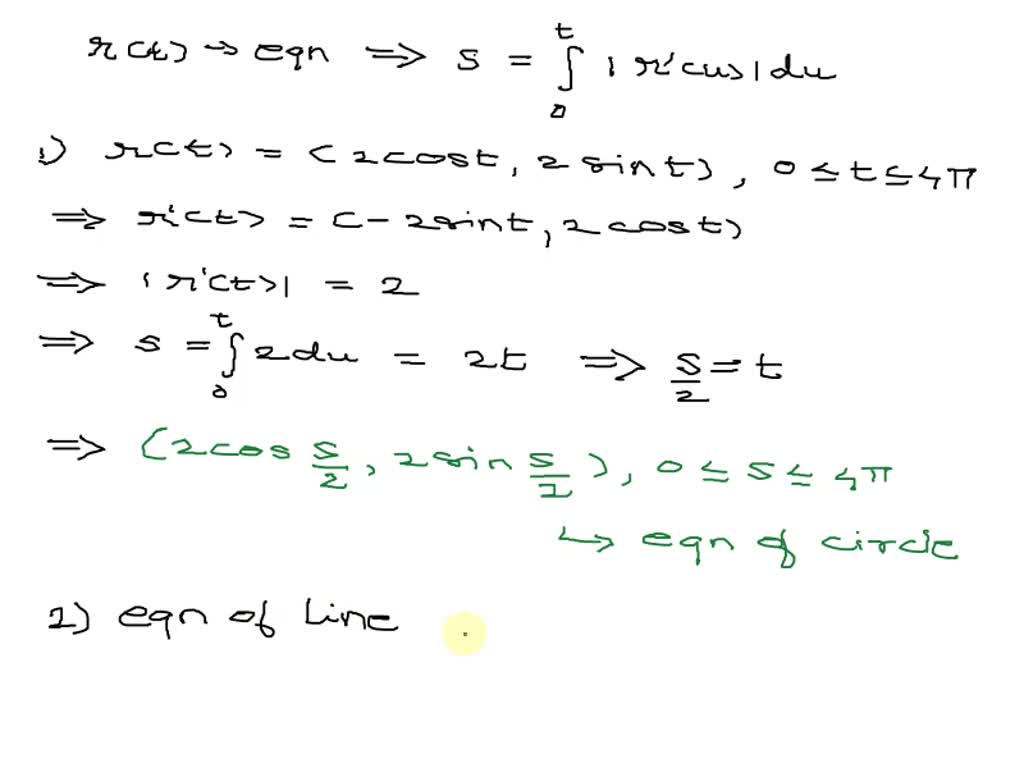 r(t) → eqn ⇒ s = ∫₀ᵗ |r'(u)| du
1) r(t) = (2cost, 2sint), 0 ≤ t ≤ 4π
⇒ r'(t) = (-2sint, 2cost)
⇒ |r'(t)| = 2
⇒ s = ∫₀ᵗ 2du = 2t ⇒ s/2 = t
⇒ (2cos s/2, 2sin s/2), 0 ≤ s ≤ 4π
↳ eqn of circle
2) eqn of line